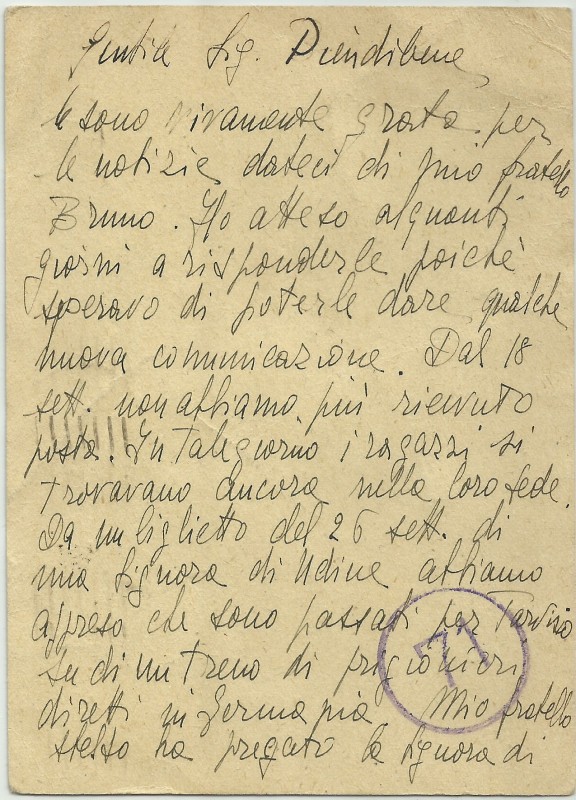 Gentile Sig. Piendibene
le sono vivamente grata per
le notizie dateci di mio fratello
Bruno. Ho atteso alquanti
giorni a risponderle poichè
speravo di poterle dare qualche
nuova comunicazione. Dal 18
sett. non abbiamo più ricevuto
posta. In tale giorno i ragazzi si
trovavano ancora nella loro sede.
Da un biglietto del 26 sett. di
una Signora di Udine abbiamo
appreso che sono passati per Tarvisio
su di un treno di prigionieri
diretti in Germania. Mio fratello
stesso ha pregato la signora di
71